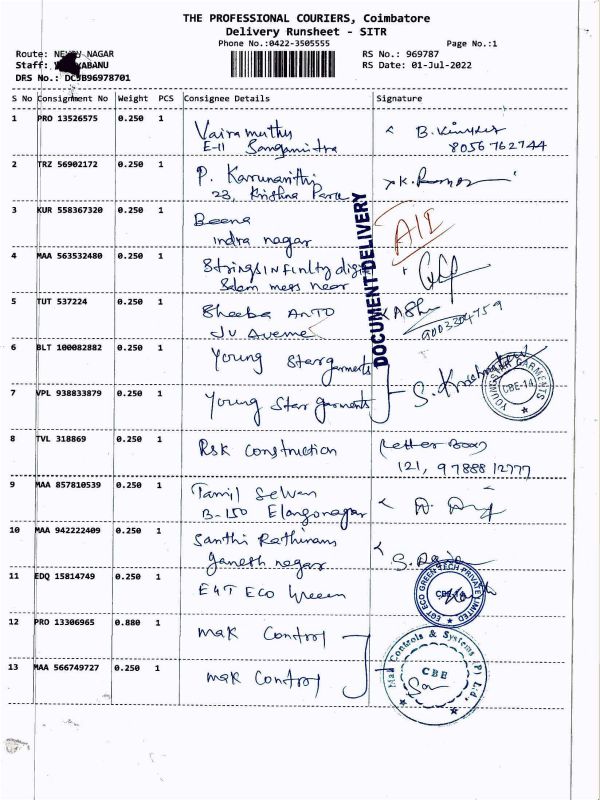 THE PROFESSIONAL COURIERS, Coimbatore
Delivery Runsheet - SITR
Phone No.:0422-3505555
Page No.:1
Route: NAGAR
RS No.: 969787
Staff: KABANU
RS Date: 01-Jul-2022
DRS No.: DCJB96978701
S No Consignment No Weight PCS Consignee Details Signature
1 PRO 13526575 0.250 1 Vaira muthu
E-11 Sangamitra
8056 762744
2 TRZ 56902172 0.250 1 P. Karunanithi
23, Krishna Para
3 KUR 558367320 0.250 1 Beena
indra nagar
4 MAA 563532480 0.250 1 Strings infinity digit
Salem mess near
5 TUT 537224 0.250 1 Sheeba ANTO
JV Avenue
9003304759
DOCUMENT DELIVERY
6 BLT 100082882 0.250 1 Young Star garments
7 VPL 938833879 0.250 1 Young Star garments
YOUNGSTAR GARMENTS
CBE-14
8 TVL 318869 0.250 1 RSK Construction
Letter Box
121, 97888 12777
9 MAA 857810539 0.250 1 Tamil Selvan
B-150 Elangonagar
10 MAA 942222409 0.250 1 Santhi Rathinam
Ganesh nagar
11 EDQ 15814749 0.250 1 EGT ECO Green
EGT ECO GREEN TECH PRIVATE LIMITED
12 PRO 13306965 0.880 1 mak Control
13 MAA 566749727 0.250 1 mak Control
Mak Controls & Systems (P) Ltd.,
CBE